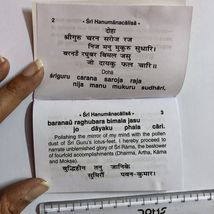 2
• Śrī Hanumānacālīsā •
दोहा
श्रीगुरु चरन सरोज रज
निज मनु मुकुरु सुधारि।
बरनउँ रघुबर बिमल जसु
जो दायकु फल चारि॥
Doha
śrīguru carana saroja raja
nija manu mukuru sudhāri,
• Śrī Hanumānacālīsā •
3
baranaũ raghubara bimala jasu
jo dāyaku phala cāri.
Polishing the mirror of my mind with the pollen
dust of Śrī Guru's lotus-feet. I hereby proceed to
narrate unblemished glory of Śrī Rāma, the bestower
of fourfold accomplishments (Dharma, Artha, Kāma
and Mokṣa).
बुद्धिहीन तनु जानिके
सुमिरौं पवन-कुमार।